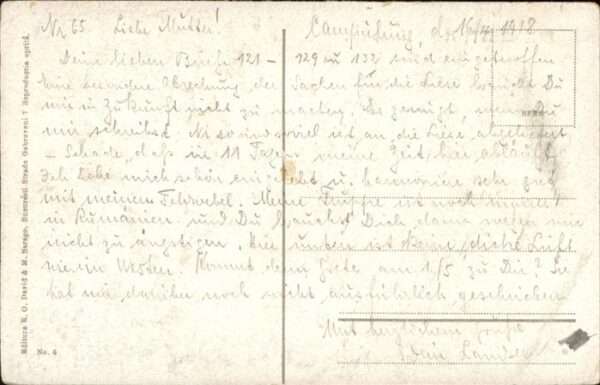 Nr 65. Liebe Mutter! Campulung, d. 16/4 1918
Deine lieben Briefe 121 – 129 u 132 sind eingetroffen
Eine besondere Abrechnung der Sachen für die Liese brauchst Du
mir in Zukunft nicht zu machen. Es genügt, wenn Du
mir schreibst Nr so und so viel ist an die Liese abgeliefert
– Schade, daß in 11 Tagen meine Zeit hier abläuft.
Ich habe mich schön eingelebt u. harmoniere sehr gut
mit meinem Feldwebel. Meine Truppe ist noch immer
in Rumänien und Du brauchst Dich darum wegen mir
nicht zu ängstigen. Hier unten ist keine dicke Luft
wie im Westen. Kommt denn Grete am 1/5 zu Dir? Sie
hat mir darüber noch nicht ausführlich geschrieben
Mit herzlichem Gruße
Dein
Editura E. O. David & M. Saraga, Bucureşti Strada Gabroveni 7 Reproducerea oprită.
No. 4